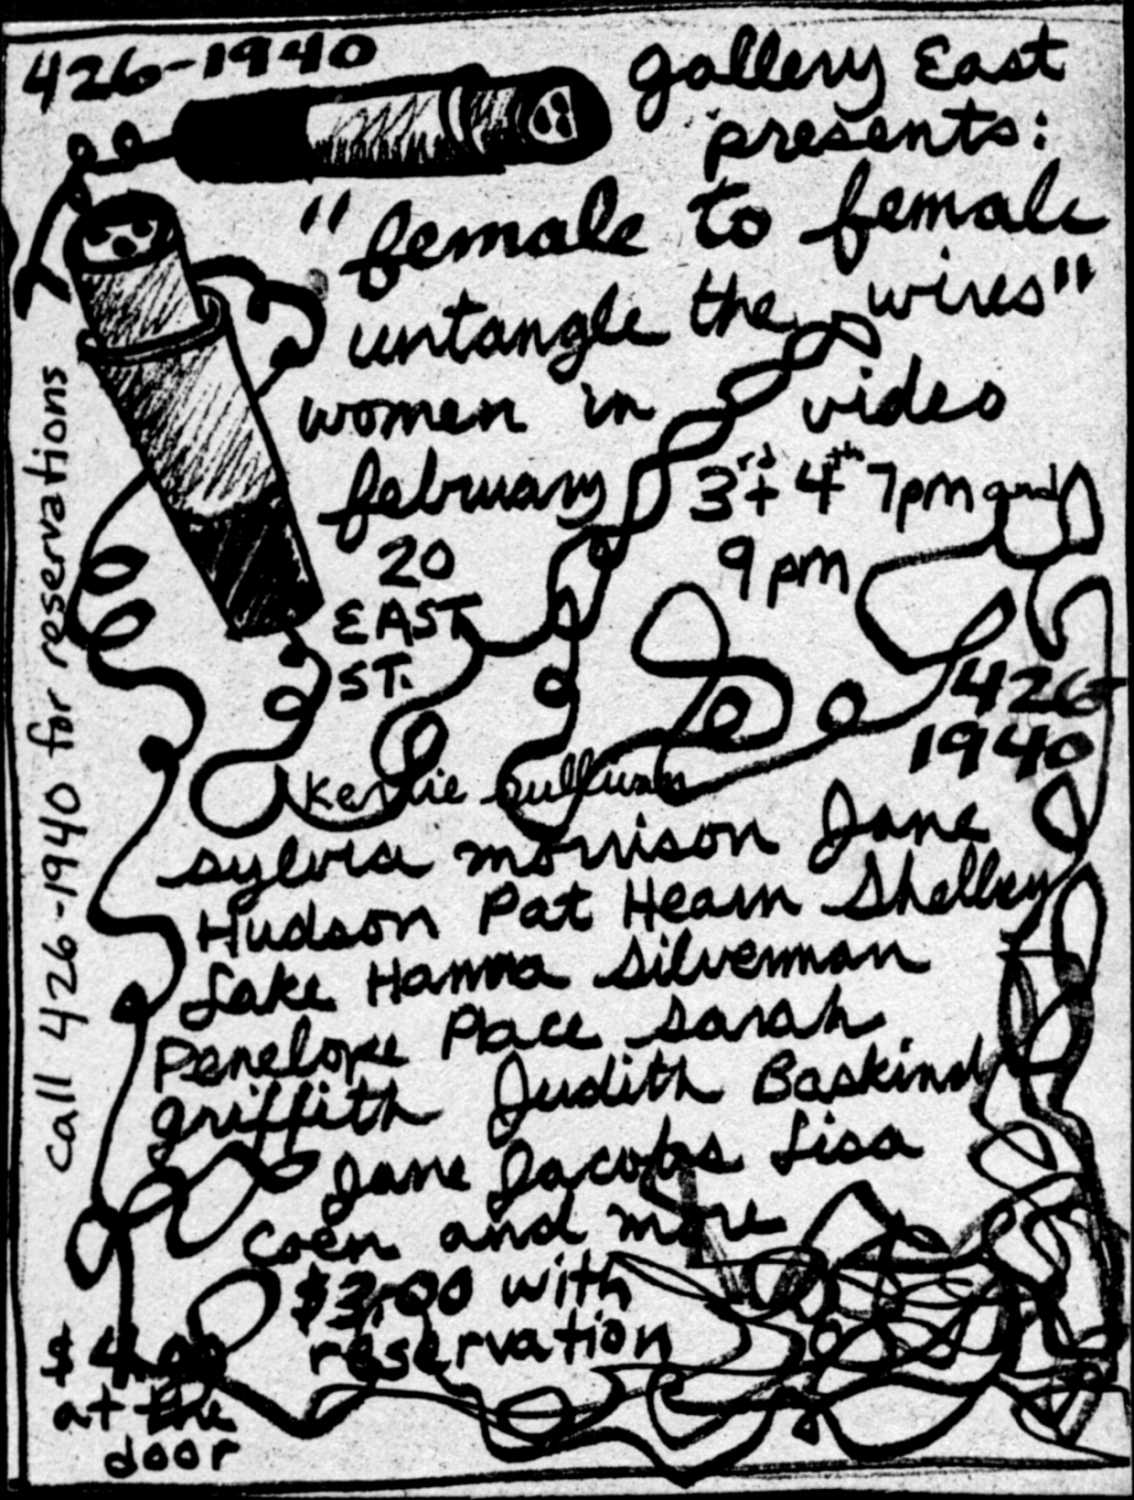 426-1940
gallery East
presents:
"female to female
untangle the wires"
women in video
february 3rd + 4th 7pm and
9 pm
20
EAST
ST.
426-
1940
Kerrie Sullivan
sylvia morrison Jane
Hudson Pat Hearn Shelley
Lake Hanna Silverman
Penelope Place sarah
griffith Judith Baskind
Jane Jacobs Lisa
Coen and more
$3.00 with
reservation
$4.00
at the
door
call 426-1940 for reservations